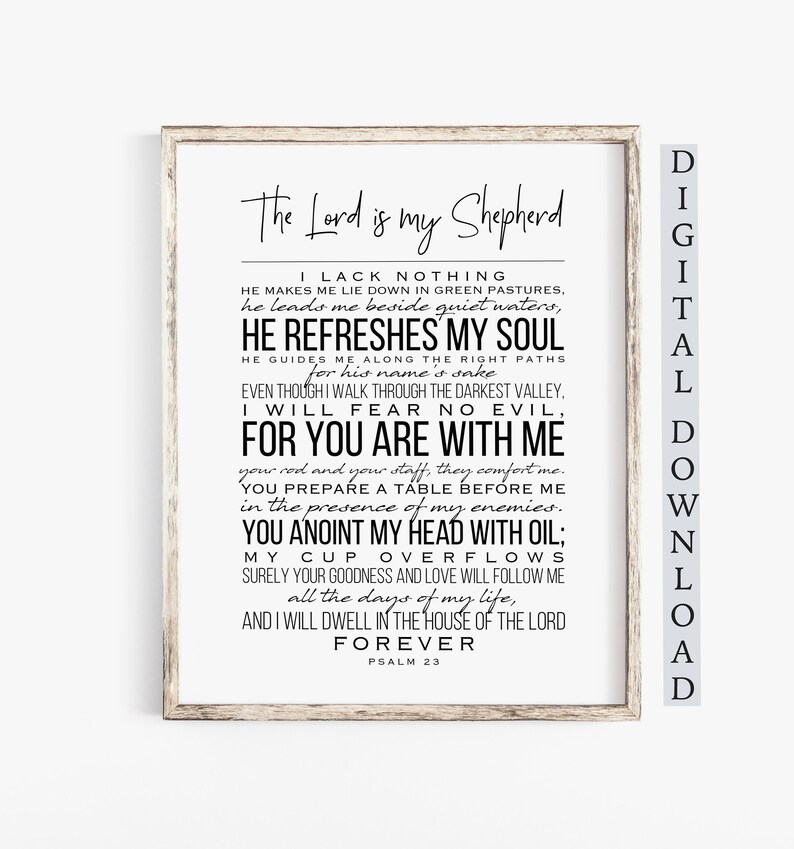 The Lord is my Shepherd
I LACK NOTHING
HE MAKES ME LIE DOWN IN GREEN PASTURES,
he leads me beside quiet waters,
HE REFRESHES MY SOUL
HE GUIDES ME ALONG THE RIGHT PATHS
for his name's sake
EVEN THOUGH I WALK THROUGH THE DARKEST VALLEY,
I WILL FEAR NO EVIL,
FOR YOU ARE WITH ME
your rod and your staff, they comfort me.
YOU PREPARE A TABLE BEFORE ME
in the presence of my enemies.
YOU ANOINT MY HEAD WITH OIL;
MY CUP OVERFLOWS
SURELY YOUR GOODNESS AND LOVE WILL FOLLOW ME
all the days of my life,
AND I WILL DWELL IN THE HOUSE OF THE LORD
FOREVER
PSALM 23
DIGITAL DOWNLOAD